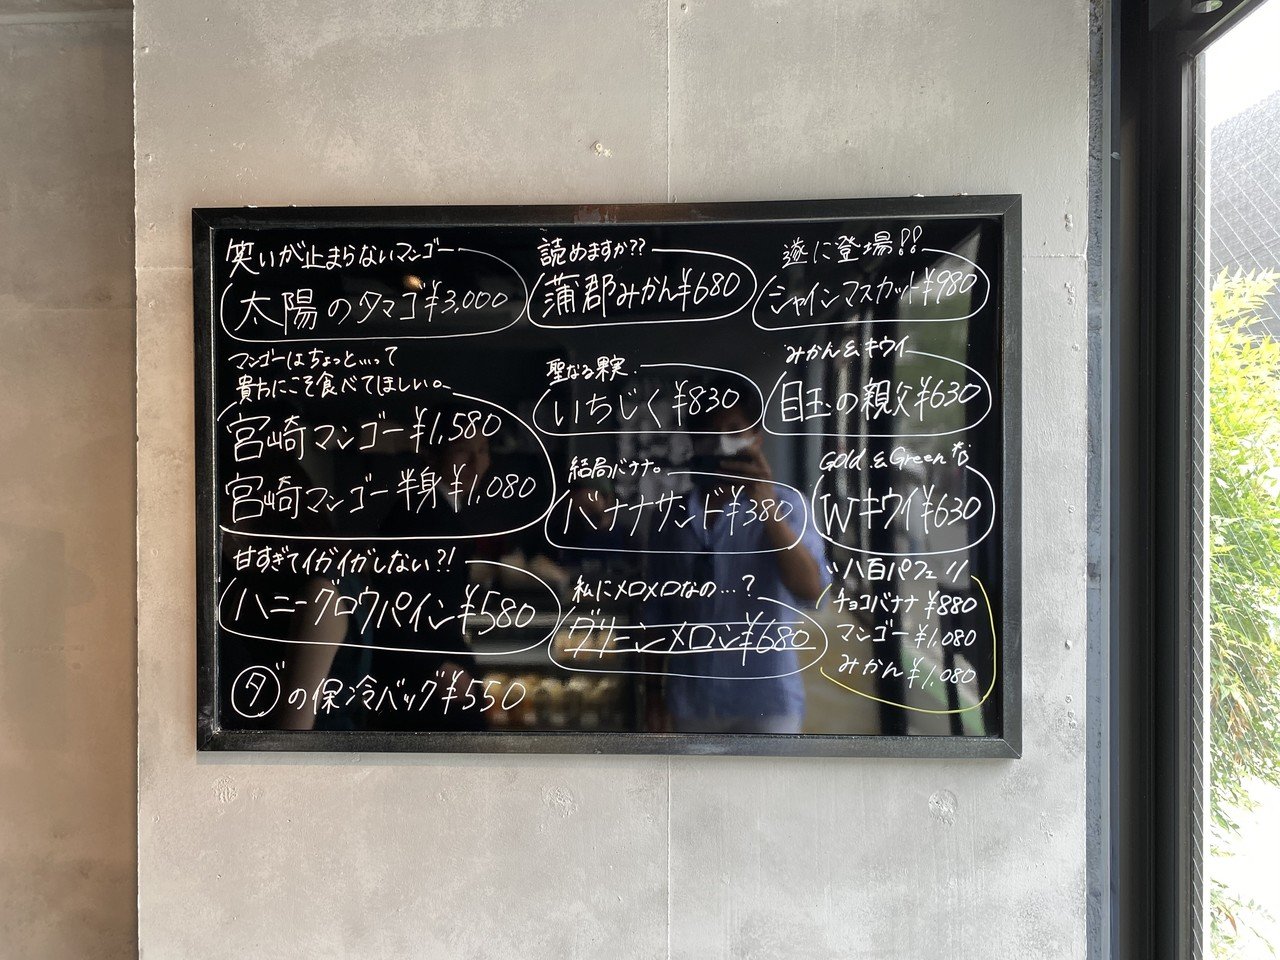 笑いが止まらないマンゴー
太陽のタマゴ¥3,000
マンゴーはちょっと…って
貴方にこそ食べてほしい。
宮崎マンゴー¥1,580
宮崎マンゴー半身¥1,080
甘すぎてイガイガしない?!
ハニーグロウパイン¥580
ダの保冷バッグ¥550
読めますか??
蒲郡みかん¥680
聖なる果実.
いちじく¥830
結局バナナ。
バナナサンド¥380
私にメロメロなの…?
グリーンメロン¥680
遂に登場!!
シャインマスカット¥980
みかん&キウイ
目玉の親父¥630
Gold &Greenな
Wキウイ¥630
\\八百パフェ//
チョコバナナ¥880
マンゴー¥1,080
みかん¥1,080